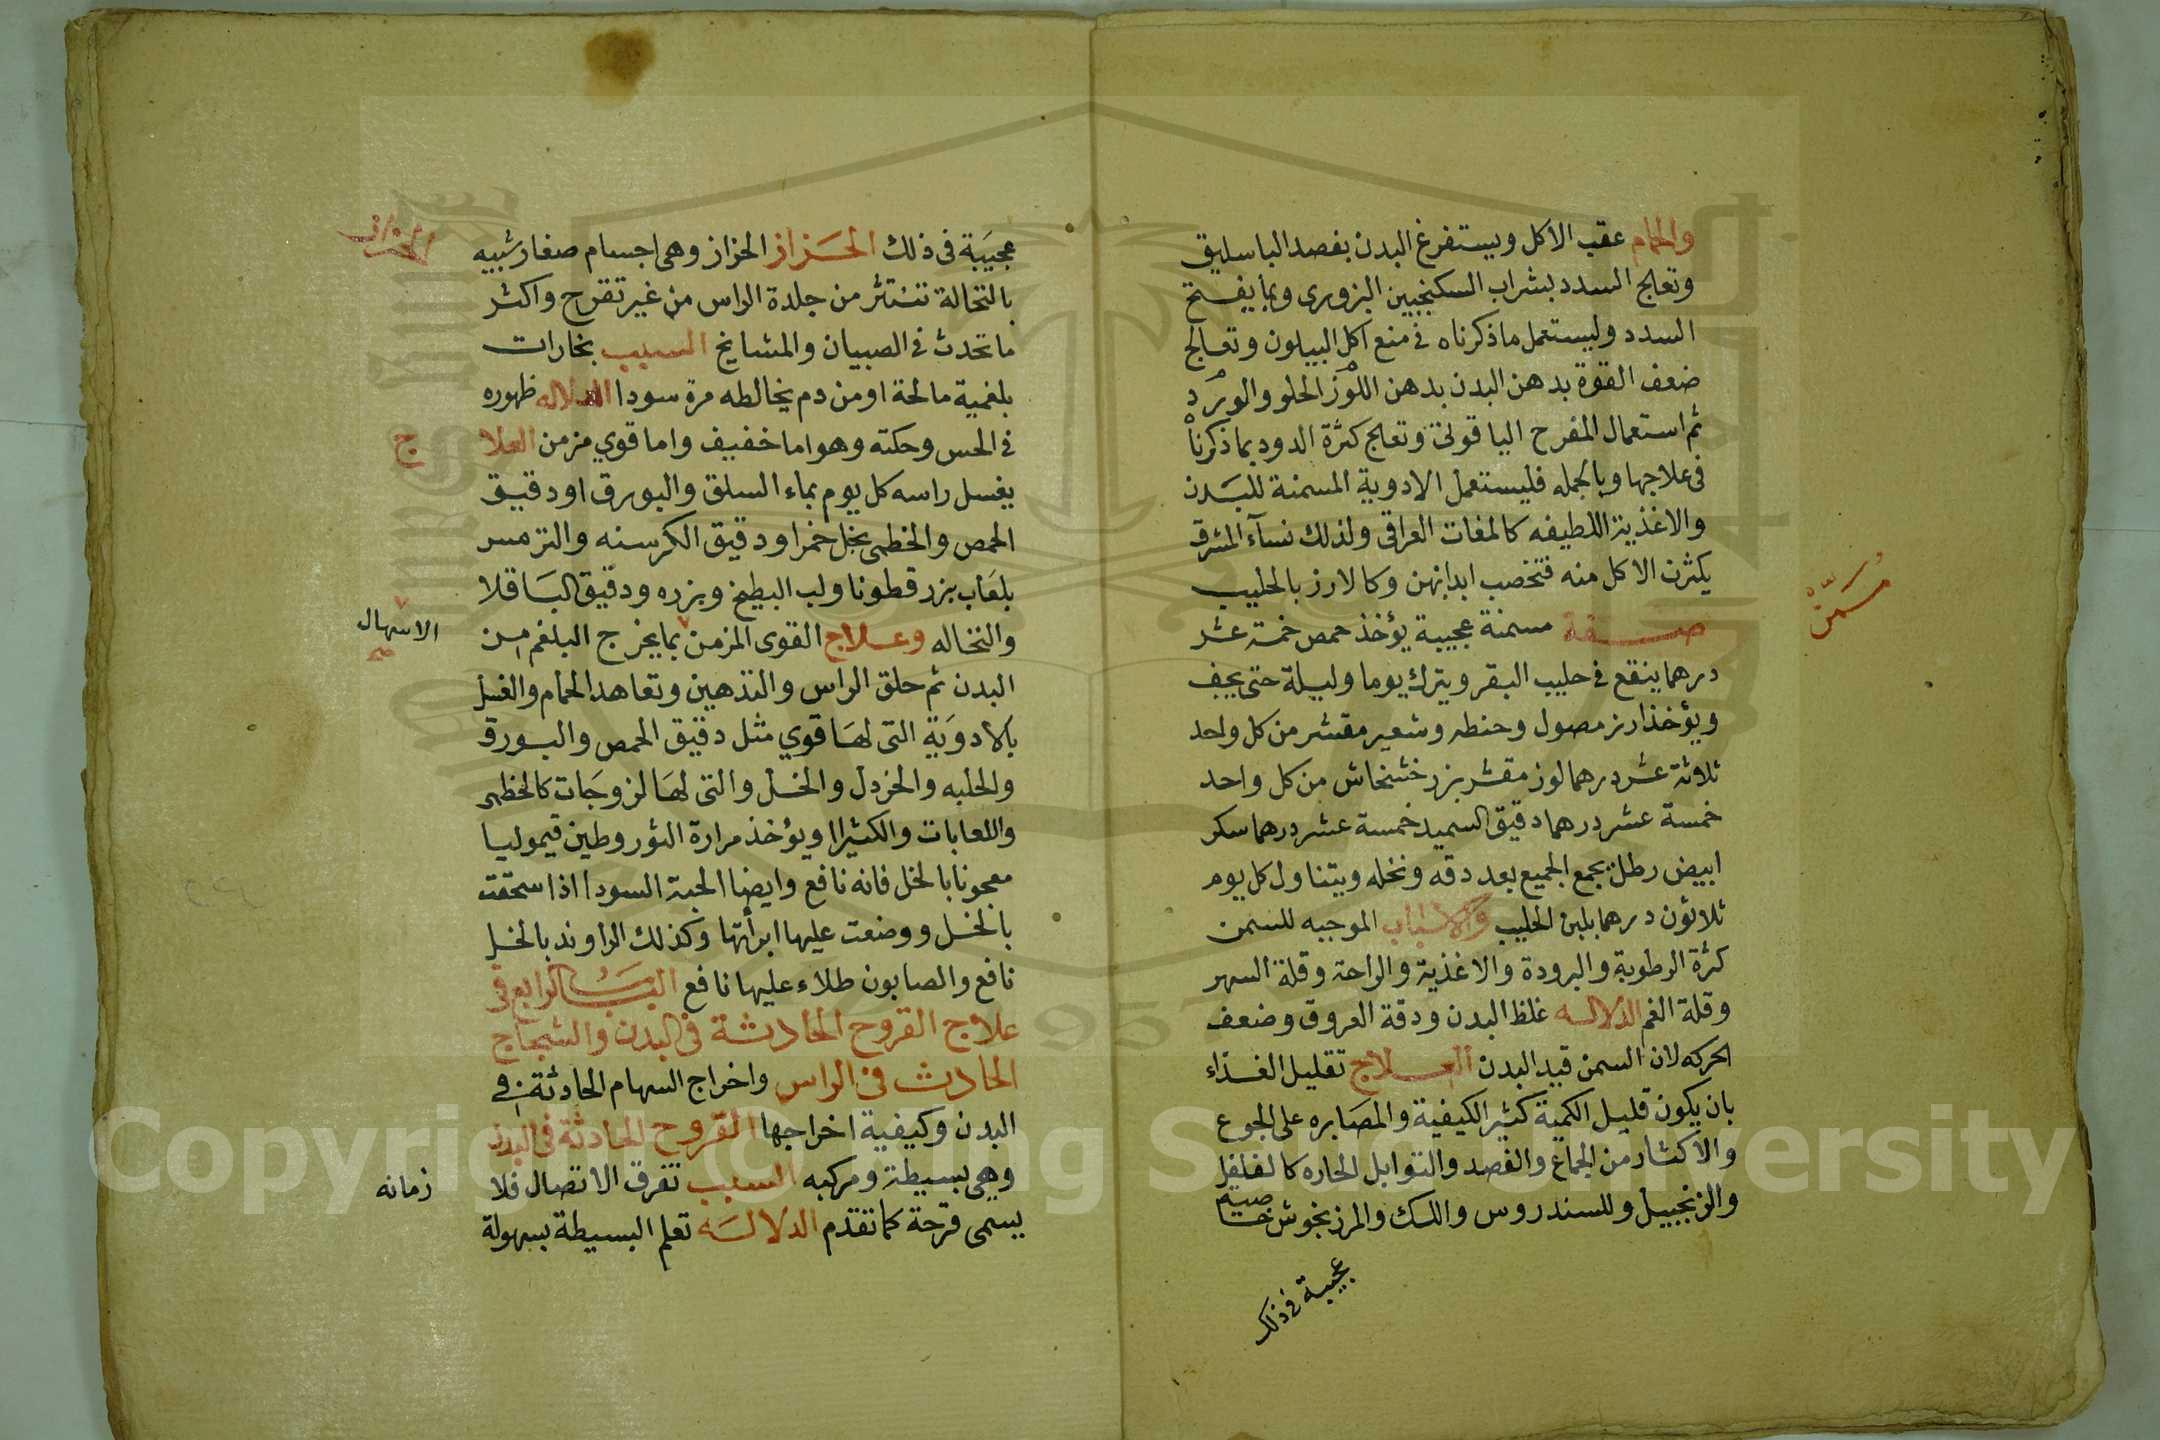 والحمام عقب الاكل ويستفرغ البدن بفصد الباسليق
وتعالج السدد بشراب السكنجبين البزورى وبما يفتح
السدد وليستعمل ما ذكرناه فى منع اكل البيلون وتعالج
ضعف القوة بدهن البدن بدهن اللوز الحلو والورد
ثم استعمال المفرح الياقوتى وتعالج كثرة الدود بما ذكرناه
فى علاجها وبالجمله فليستعمل الادوية المسمنة للبدن
والاغذية اللطيفه كالمغات العراقى ولذلك نسآء المشرق
يكثرن الاكل منه فتخصب ابدانهن وكالارز بالحليب
صفة مسمنة عجيبة يؤخذ حمص خمسة عشر
مسمن
درهما ينقع فى حليب البقر ويترك يوما وليلة حتى يجف
ويؤخذ ارز مصول وحنطه وشعير مقشر من كل واحد
ثلاثة عشر درهما لوز مقشر بزر خشخاش من كل واحد
خمسة عشر درهما دقيق السميد خمسة عشر درهما سكر
ابيض رطل يجمع الجميع بعد دقه ونخله ويتناول كل يوم
ثلاثون درهما بلبن الحليب والاسباب الموجبه للسمن
كثرة الرطوبة والبرودة والاغذية والراحة وقلة السهر
وقلة الغم الدلاله غلظ البدن ودقة العروق وضعف
الحركه لان السمن قيد البدن العلاج تقليل الغذاء
بان يكون قليل الكمية كثير الكيفية والمصابره على الجوع
والاكثار من الجماع والفصد والتوابل الحاره كالفلفل
والزنجبيل وللسندروس واللك والمرزنجوش خاصية
عجيبة فى ذلك
عجيبة فى ذلك الحزاز الحزاز وهى اجسام صغار شبيه
الحزاز
بالنخالة تنتثر من جلدة الراس من غير تقرح واكثر
ما تحدث فى الصبيان والمشايخ السبب بخارات
بلغمية مالحة او من دم يخالطه مرة سودا الدلاله ظهوره
فى الحس وحكته وهو اما خفيف واما قوي مزمن العلا
ج
يغسل راسه كل يوم بماء السلق والبورق او دقيق
الحمص والخطمى بخل خمر او دقيق الكرسنه والترمس
بلعاب بزر قطونا ولب البطيخ وبزره ودقيق الباقلا
والنخاله وعلاج القوى المزمن بما يخرج البلغم من
الاسهال
صح
البدن ثم حلق الراس والتدهين وتعاهد الحمام والغسل
بالادوية التى لها قوي مثل دقيق الحمص والبورق
والحلبه والخردل والخل والتى لها لزوجات كالخطمى
واللعابات والكثيرا ويؤخذ مرارة الثور وطين قيموليا
معجونا بالخل فانه نافع وايضا الحبة السودا اذا سحقت
بالخل ووضعت عليها ابرأتها وكذلك الراوند بالخل
نافع والصابون طلاء عليها نافع الباب الرابع فى
علاج القروح الحادثة فى البدن والشجاج
الحادث فى الراس واخراج السهام الحادثة فى
البدن وكيفية اخراجها القروح الحادثة فى البدن
وهى بسيطة ومركبه السبب تفرق الاتصال فلا
زمانه
يسمى قرحة كما تقدم الدلالة تعلم البسيطة بسهولة
Copyright © King Saud University